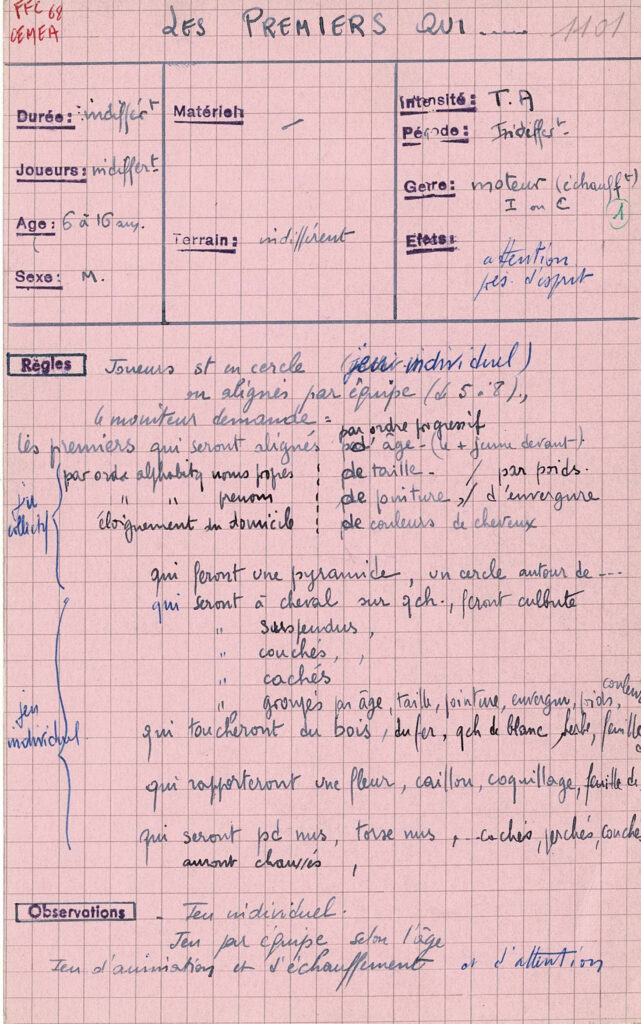 FFC 68
CEMEA
LES PREMIERS QUI ..... 1101
Durée : indiffért
Joueurs : indiffert
Age : 6 à 16 ans.
Sexe : M.
Matériel : —
Terrain : indifférent
Intensité : T.A
Période : Indiffert
Genre : moteur (échaufft)
I ou C
1
Effets :
attention
prés. d'esprit
Règles Joueurs st en cercle (jeu individuel)
ou alignés par équipe (de 5 à 8).,
le moniteur demande =
par ordre progressif
Les premiers qui seront alignés d'âge - (le + jeune devant)
par ordre alphabétq noms propes de taille - / par poids.
" " prénom de pointure, / d'envergure
éloignement du domicile de couleurs de cheveux
jeu
collectif
qui feront une pyramide, un cercle autour de ---
qui seront à cheval sur qch., feront culbute
" suspendus,
" couchés, ,
" cachés
" groupés par âge, taille, pointure, envergure, poids, couleur
jeu
individuel
qui toucheront du bois, du fer, qch de blanc, feuille
qui rapporteront une fleur, caillou, coquillage, feuille de
qui seront pd nus, torse nus, ... cachés, perchés, couché
auront chaussés ,
Observations - Jeu individuel.
Jeu par équipe selon l'âge
Jeu d'animation et d'échauffement et d'attention